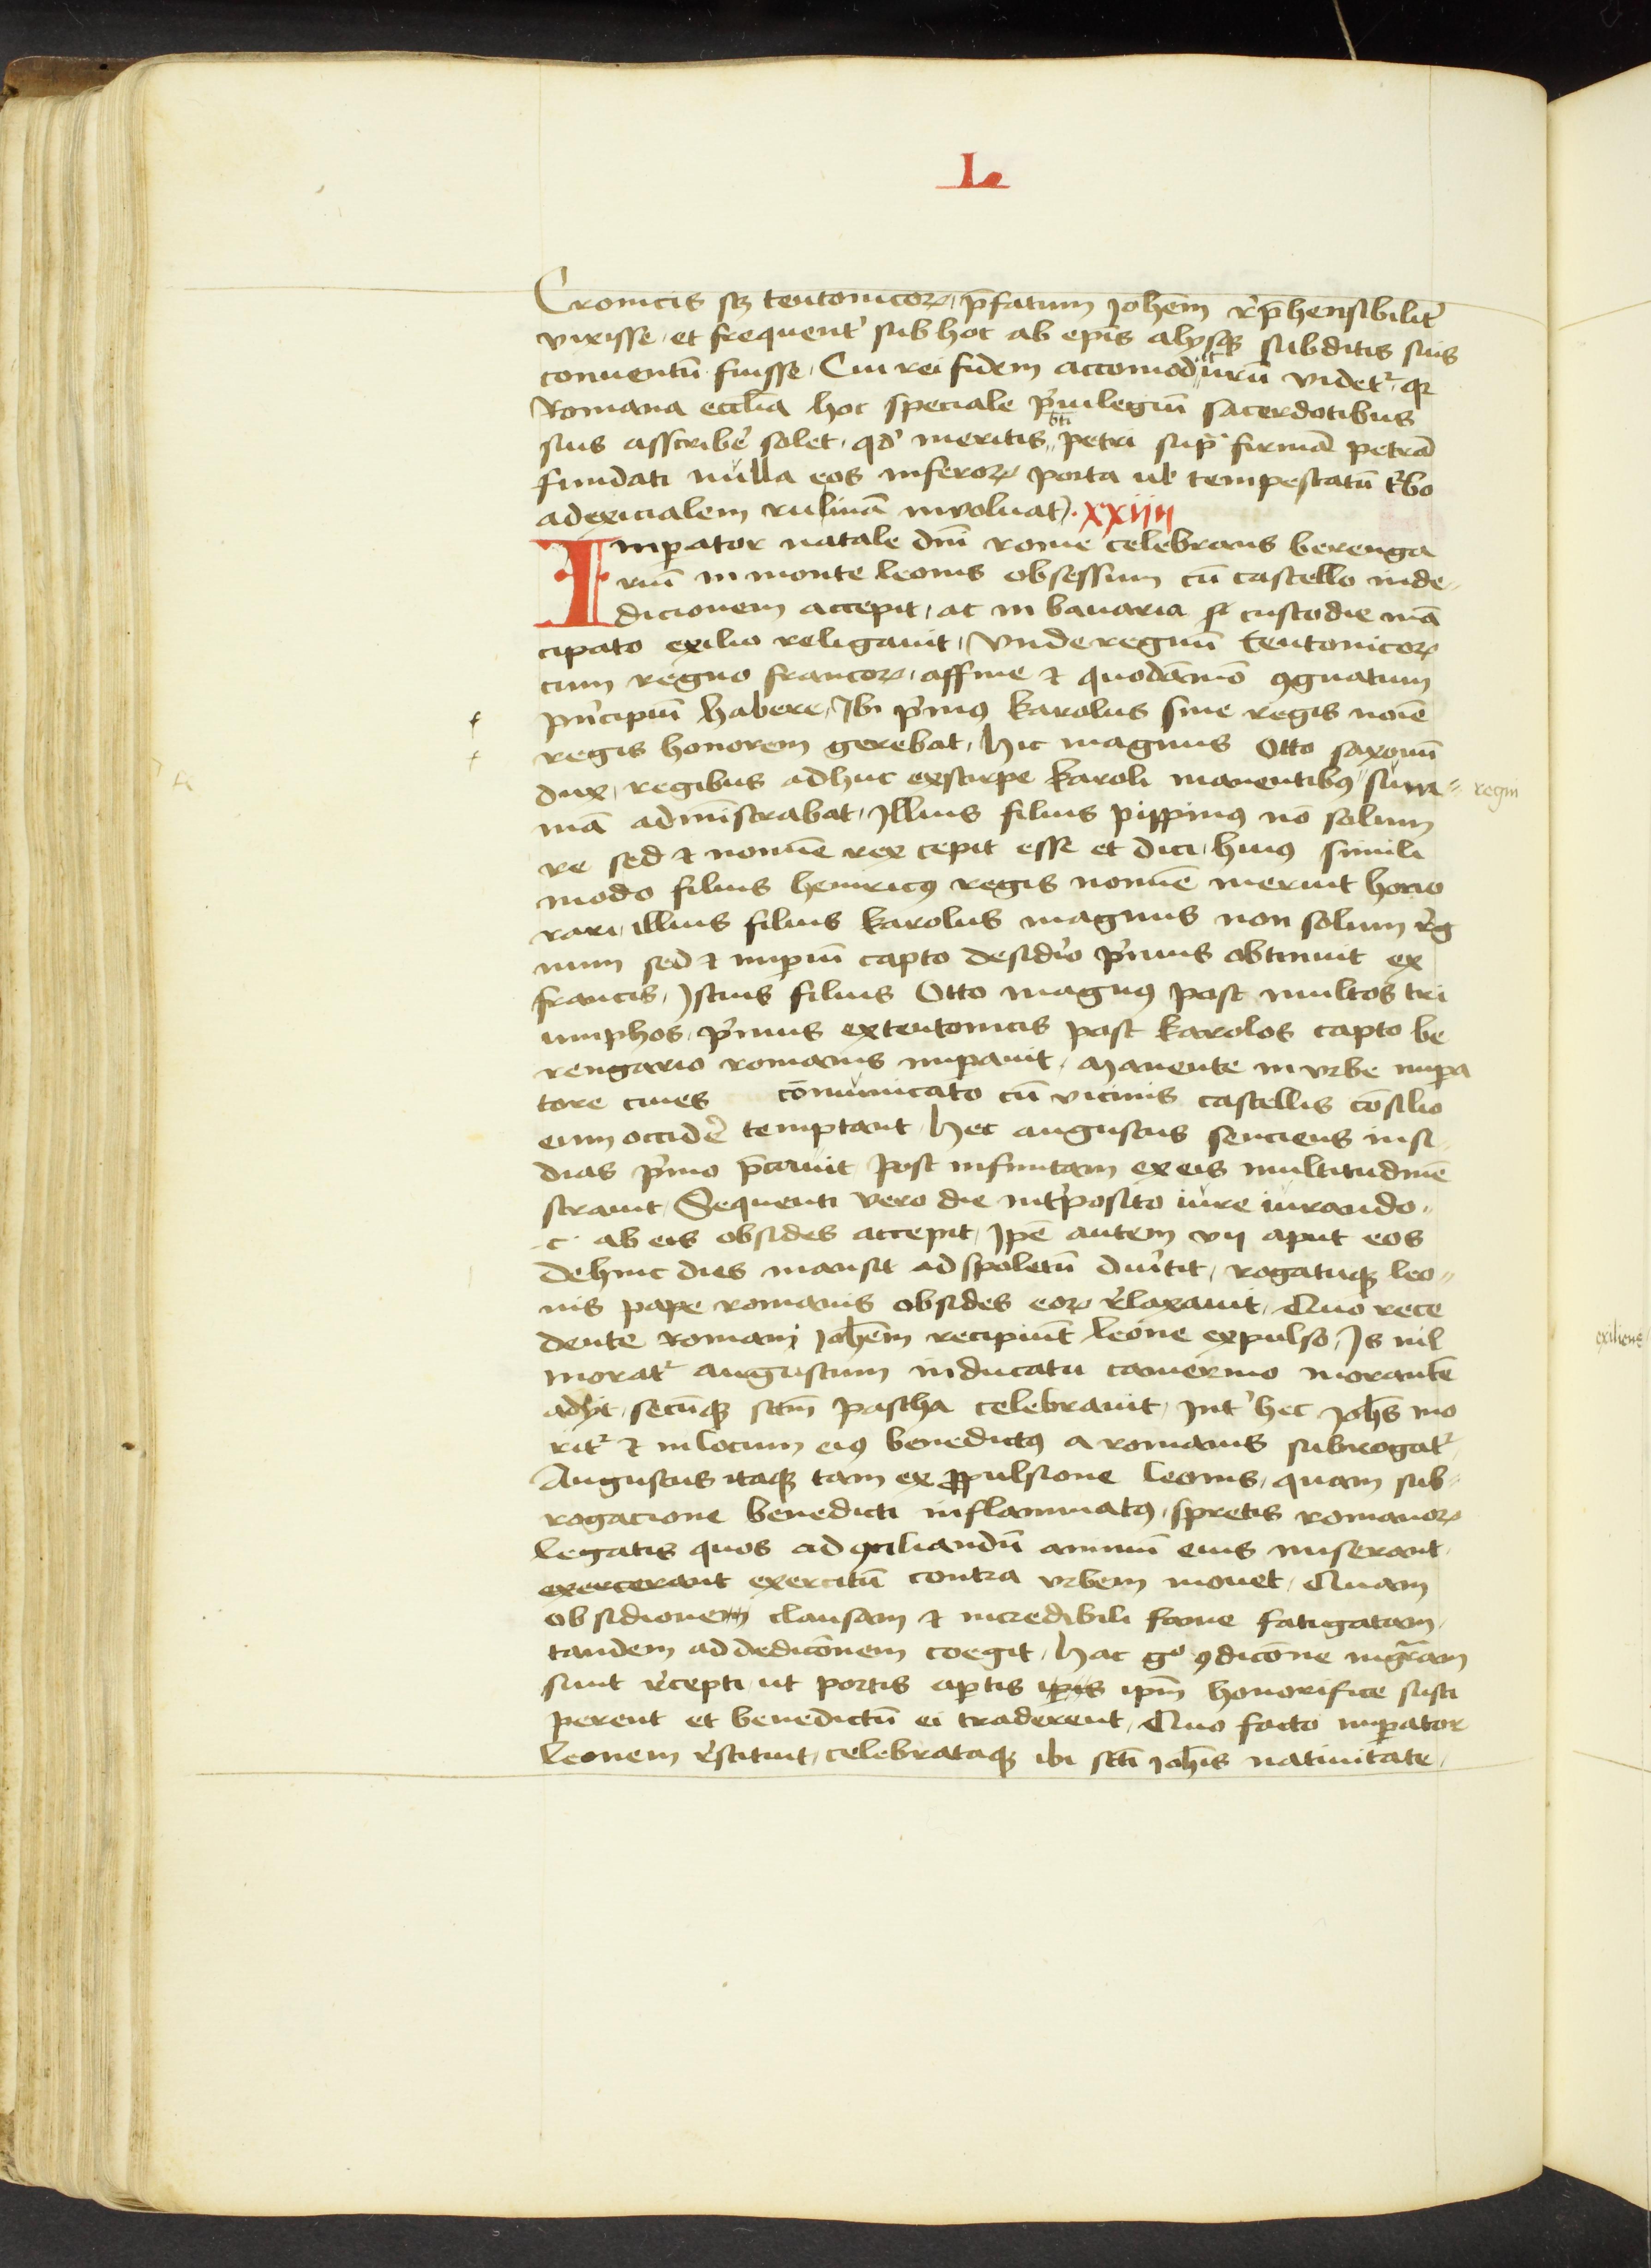 L
Cronicis sꝫ teutonicoꝝ, p̄fatum Joh̄em rep̄hensibilit̾
vixisse, et frequent̾ sub hoc ab ep̄is alysqꝫ subditis suis
conuentū fuisse, Cui rei fidem accomod urū videt᷑, qꝛ
Romana eccl̄ia hoc speciale p̾uilegiū sacerdotibus
suis asscribe̾ solet, qd̾ meritis bt̄i petri sup̾ firmā petrā
fundati nulla eos inferoꝝ porta ul̾ tempestatū t̾bo
ad exicialem ruinā inuoluat. xxiiii
Imꝑator natale dn̄i rome celebrans berenga
riū in monte leonis obsessum cū castello in de„
dicionem accepit, ac in bauaria custodie mā
cipato exilio religauit, Vnde regnū teutonicoꝝ
cum regno francoꝝ, affine ⁊ quodāmō ꝯgnatum
pn̾cipiū habere, Ibi p̾mꝰ karolus sine regis noīe
regis honorem gerebat, Hic magnus Otto saxonū
dux, regibus adhuc ex stirpe karoli manentibꝰ sum„ regni
mā admīstrabat, Illius filius pippinꝰ nō solum
re sed ⁊ nomīe rex cepit esse et dici, huiꝰ simili
modo filius henricꝰ regis nomīe meruit hono
rari, illius filius karolus magnus non solum r̾g
num sed ⁊ imꝑiū capto desid̾io p̾mus obtinuit ex
francis, Istius filius Otto magnꝰ post multos tri
umphos, p̾mus ex teutonicis post karolos capto be
rengario romanis imꝑauit, Manente in vrbe imꝑa
tore ciues cōmunicato cū vicinis castellis cōsilio
eum occide̾ temptant, Hec augustus senciens insi
dias p̾mo p̄cauit Post infinitam ex eis multitudinē
strauit, Sequenti vero die int̾posito iure iurando„
c ab eis obsides accepit, Ip̄e autem vij aput eos
dehinc dies mansit ad spoletū diu̾tit, rogatuqꝫ leo„
nis pape romanis obsides eoꝝ r̾laxauit, Quo rece
dente Romani Joh̄em recipiūt leone expulso, Is nil
morat᷑ augustum in ducatu camerino morantē
adyt, secūqꝫ sc̄m pascha celebrauit, Int̾ hec Joh̄s mo
rit᷑ ⁊ in locum eiꝰ benedictꝰ a romanis subrogat᷑,
Augustus itaqꝫ tam ex pulsione leonis, quam sub„
rogacione benedicti inflammatꝰ, spretis romanoꝝ
legatis quos ad ꝯciliandū animū eius miserant
exercerant exercitū contra vrbem mouet, Quam
obsidionem clausam ⁊ incredibili fame fatigatam,
tandem ad dedicōnem coegit, Hac gͦ ꝯdicōne in gr̄am
sunt r̾cepti, ut portis aꝑtis ip̄is ip̄m honorifice susci
perent et benedictū ei traderent, Quo facto imꝑator
Leonem r̾stituit, celebrataqꝫ ibi sc̄i Joh̄is natiuitate,
exiliens